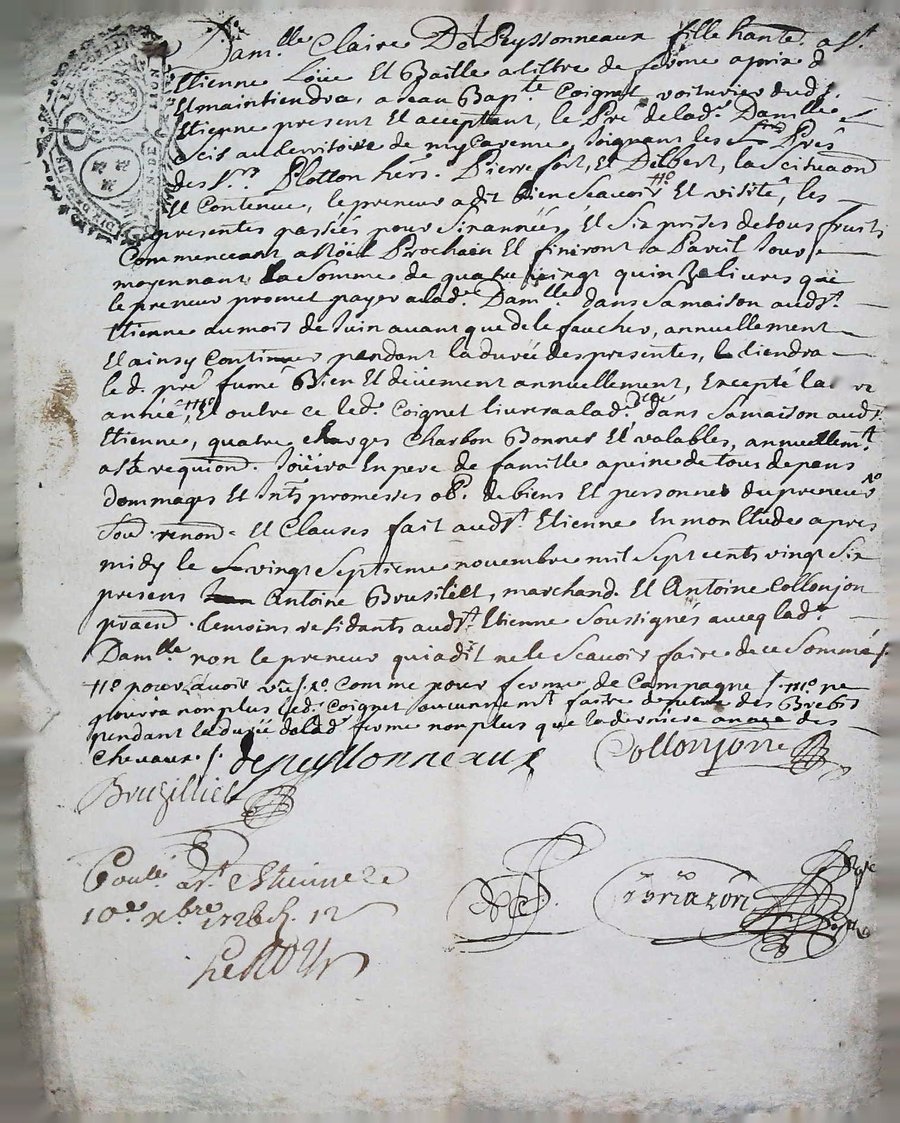 Dam.lle Claire De Peyssonneaux fille hante. a St.
Etienne Loüe Et Baille a tiltre de ferme a prix d
Et maintiendra, a Jean Bap.te Coignet voiturier dud. St.
Etienne present et acceptant, le Pré de lad.e Dam.lle
Scis au territoire de Joignant les Prés
des S.rs Plotton hérs. Pierrefort, Et Dilbert, la Scituaon
Et Contenue, le preneur a dit bien Scavoir Et visité, les
presentes passées pour Six années, Et Six prises de tous fruits
Commenceant a Noël Prochain Et finiront a Pareil Jour
moyennant la Somme de quatre vingt quinze livres que
le preneur promet payer a lad.e Dam.lle dans Sa maison aud. St.
Etienne au mois de Juin avant que de le faucher, annuellement
Et ainsy Continuer pendant la durée des presentes, tiendra
le d. pré fumé Bien Et düement annuellement, Excepté la
année, Et outre ce led. Coignet livrera a lad. dans Sa maison aud. St.
Etienne, quatre charges Charbon Bonnes Et valables, annuellem.t
a Sa requiond. Joüira En pere de famille a peine de tous depens
dommages Et Jnts promesses ob. de biens Et personnes du preneur
Soud. renond. Et Clauses fait aud. St. Etienne En mon Etude apres
midy le vingt Septieme novembre mil Sept cents vingt Six
presens Antoine Brusilliet, marchand. Et Antoine Collonjon
praend. temoins residants aud. St. Etienne Soussignés avecq lad.e
Dam.lle non le preneur qui a dit ne le Scavoir faire de ce Sommé /.
pour avoir vu Comme pour ferme de Campagne ne
pourra non plus led. Coignet aucunnem.t faire des Brebis
pendant la durée de lad. ferme non plus que la derniere année des
Chevaux /. depeyssonneaux Collonjonne
Bruzilliet
Coulé a St. Estienne le
10e xbre 1726 R. 12